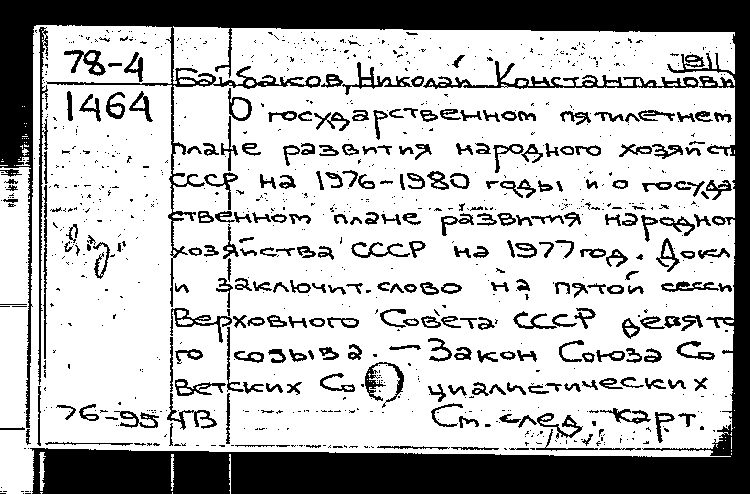 78-4
1464
Байбаков, Николай Константинови
О государственном пятилетнем
плане развития народного хозяйст
СССР на 1976-1980 годы и о госуда
ственном плане развития народног
хозяйства СССР на 1977 год. Докл
и заключит. слово на пятой сесси
Верховного Совета СССР девято
го созыва. — Закон Союза Со-
ветских Со циалистических
76-95 См. след. карт.